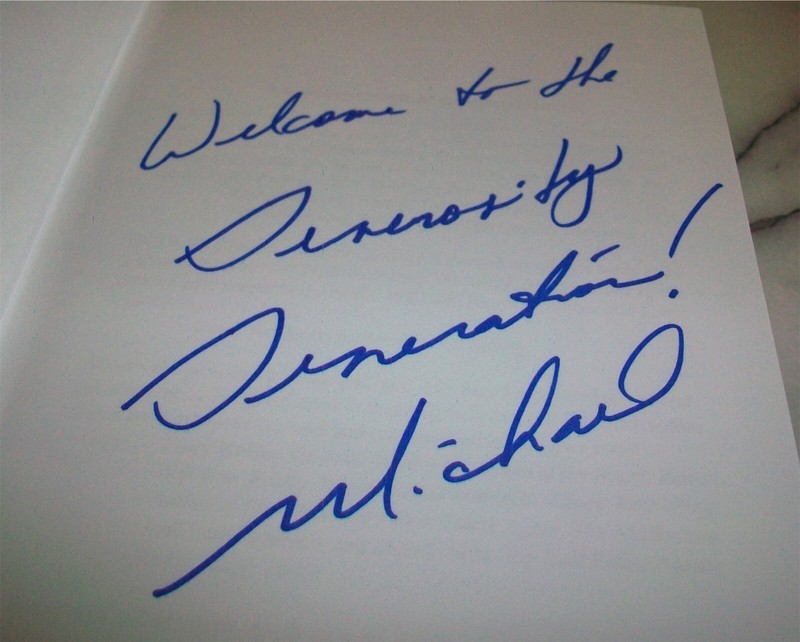 Welcome to the
Generosity
Generation!
Michael